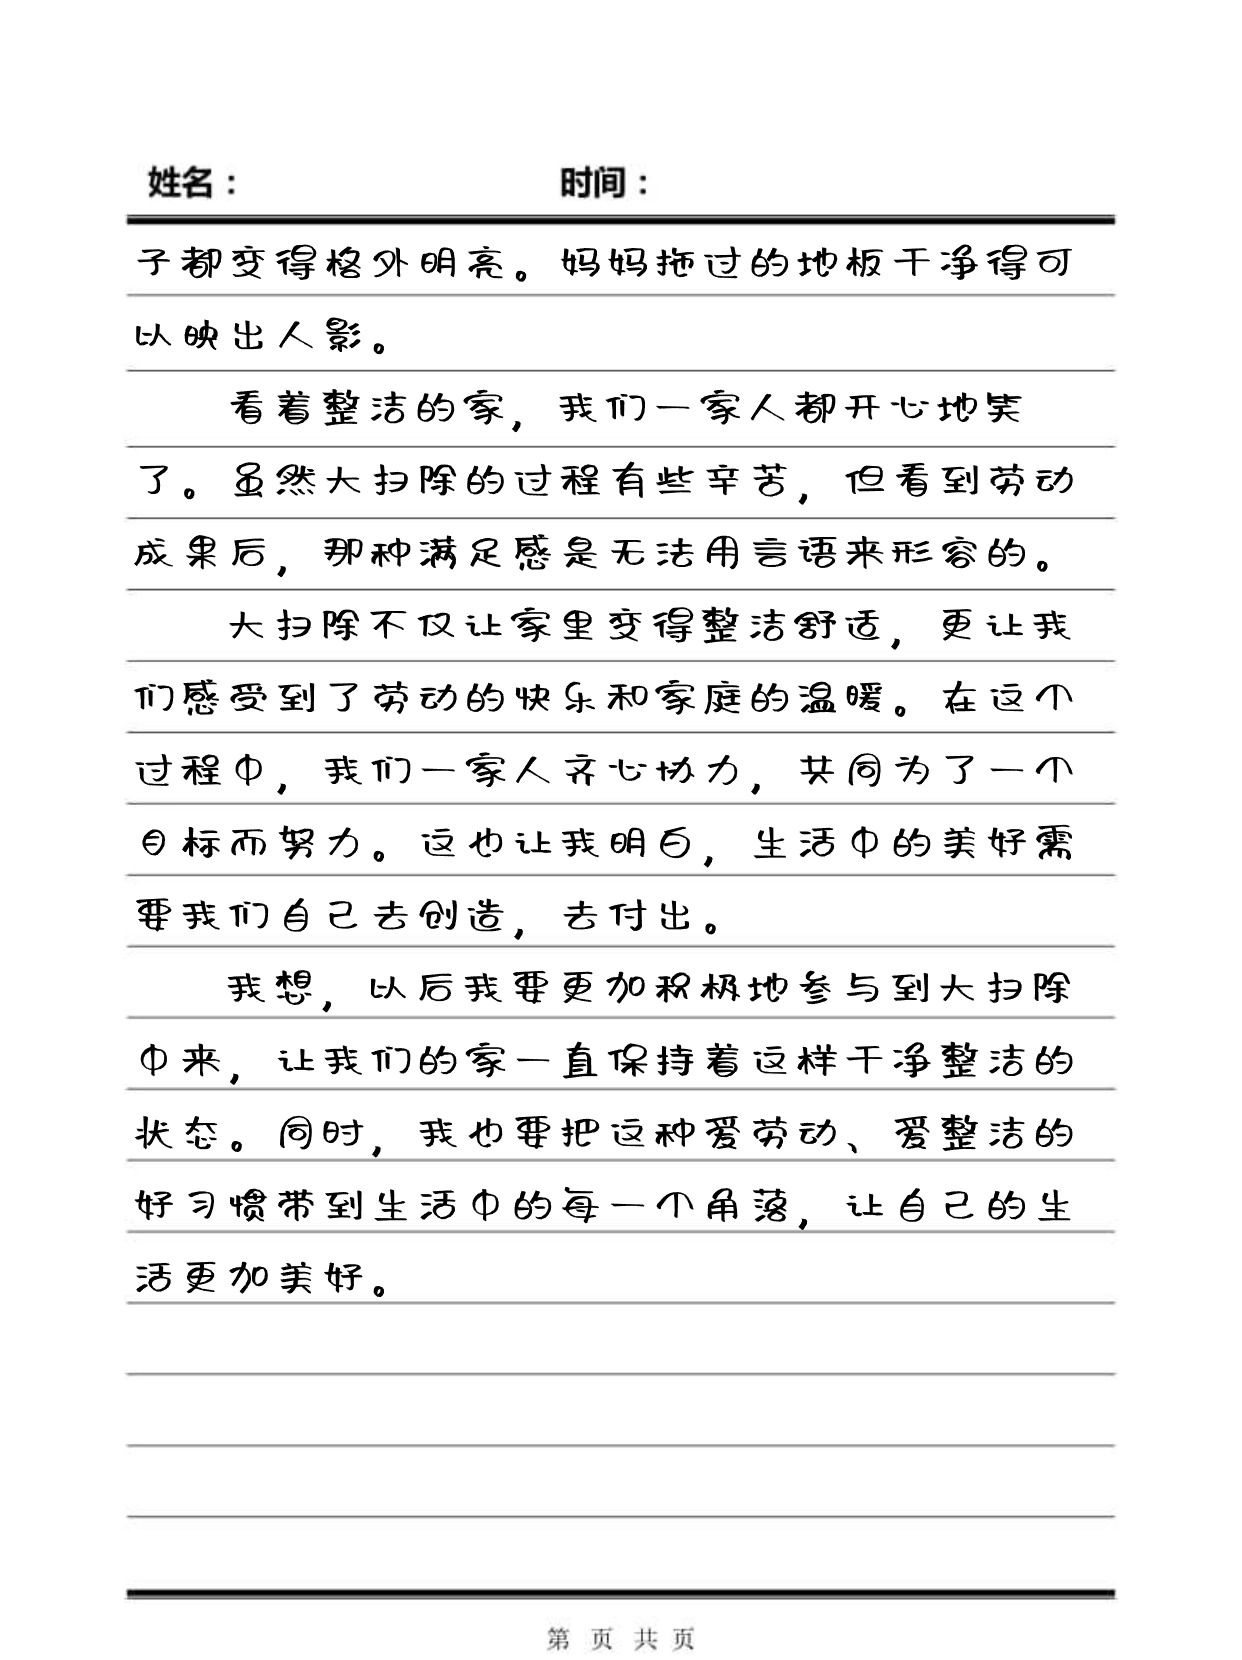 姓名： 时间：
子都变得格外明亮。妈妈拖过的地板干净得可
以映出人影。
看着整洁的家，我们一家人都开心地笑
了。虽然大扫除的过程有些辛苦，但看到劳动
成果后，那种满足感是无法用言语来形容的。
大扫除不仅让家里变得整洁舒适，更让我
们感受到了劳动的快乐和家庭的温暖。在这个
过程中，我们一家人齐心协力，共同为了一个
目标而努力。这也让我明白，生活中的美好需
要我们自己去创造，去付出。
我想，以后我要更加积极地参与到大扫除
中来，让我们的家一直保持着这样干净整洁的
状态。同时，我也要把这种爱劳动、爱整洁的
好习惯带到生活中的每一个角落，让自己的生
活更加美好。
第 页 共 页